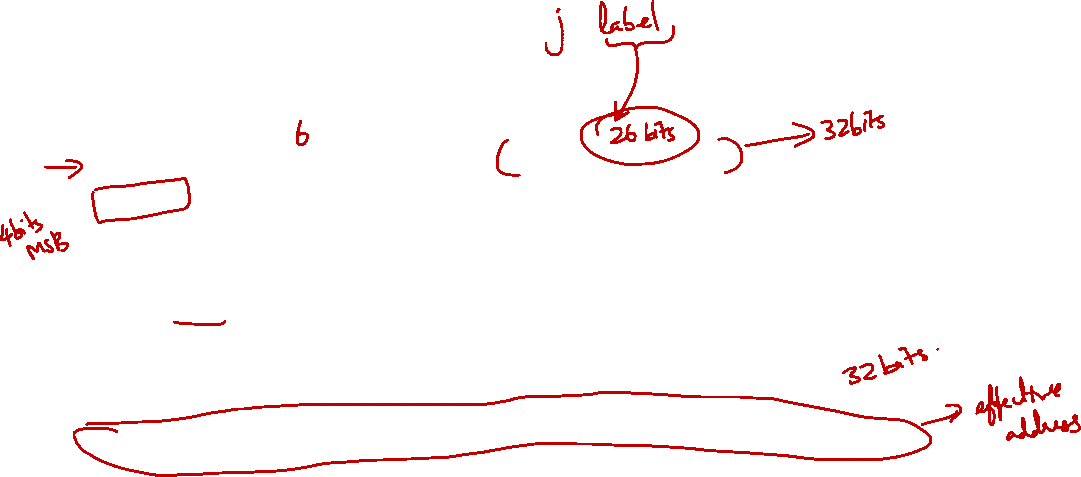 j label
6
26 bits
32bits
4bits
MSB
32bits.
effective
address